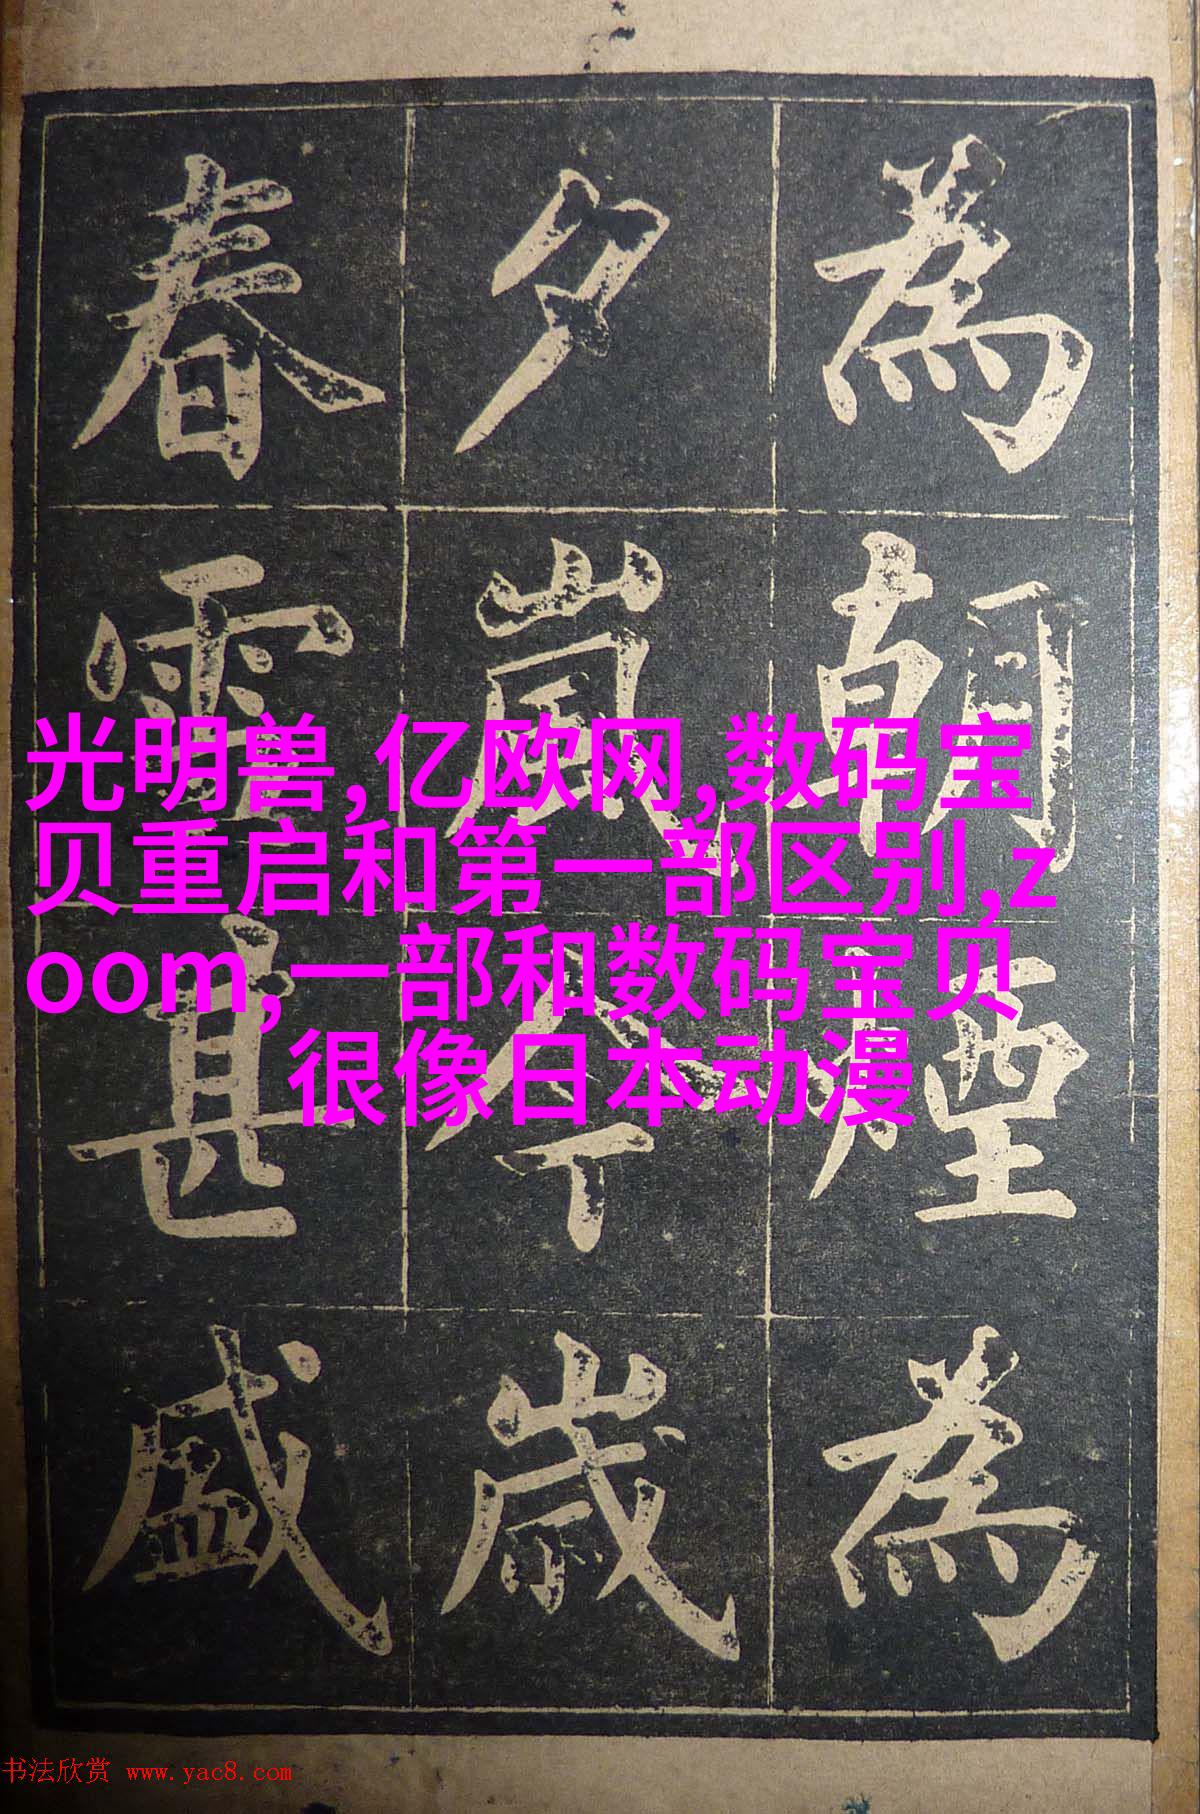 為朝煙為
夕嵐今歲
春雪甚盛
光明兽,亿欧网,数码宝
贝重启和第一部区别,z
oom,一部和数码宝贝
很像日本动漫
书法欣赏 www.yac8.com